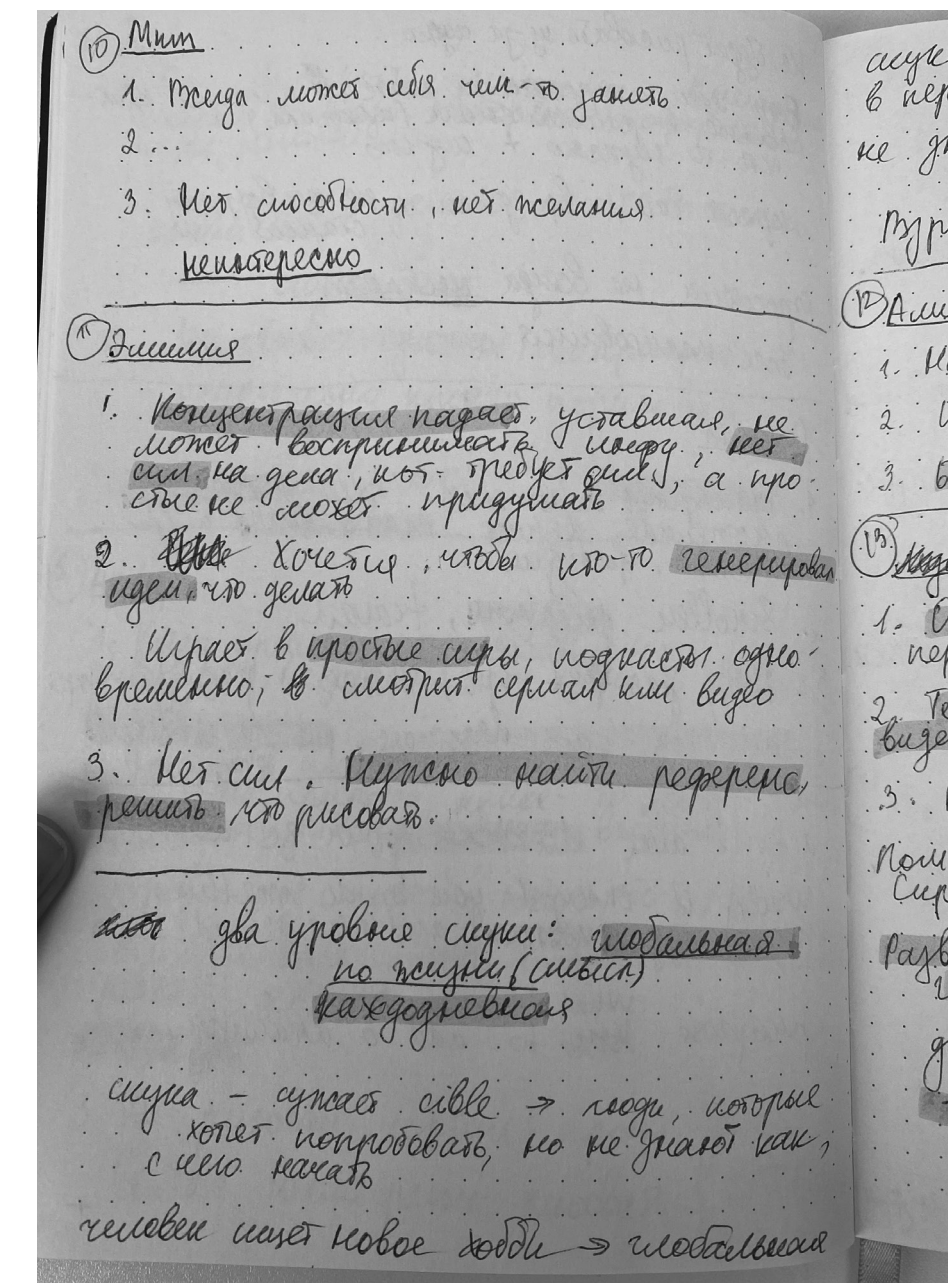 10 Мит
1. Всегда может себя чем-то занять
2...
3. Нет способности, нет желания.
неинтересно
11 Эмилия
1. Концентрация падает, уставшая, не
может воспринимать инфу, нет
сил на дела, кот. требует сил, а про-
стые не может придумать
2. Хочется, чтобы кто-то генерировал
идеи, что делать
Играет в простые игры, подкасты одно-
временно, смотрит сериал или видео
3. Нет сил. Нужно найти референс,
решить что рисовать.
два уровня скуки: глобальная
по жизни (смысл)
каждодневная
скука – сужает cible → люди, которые
хотят попробовать, но не знают как,
с чего начать
человек ищет новое хобби → глобальная
скук
в пер
не зн
Взр
12 Али
1. Н
2.
3.
13
1.
пер
2. Те
виде
3.
Пом
Сир
Разв